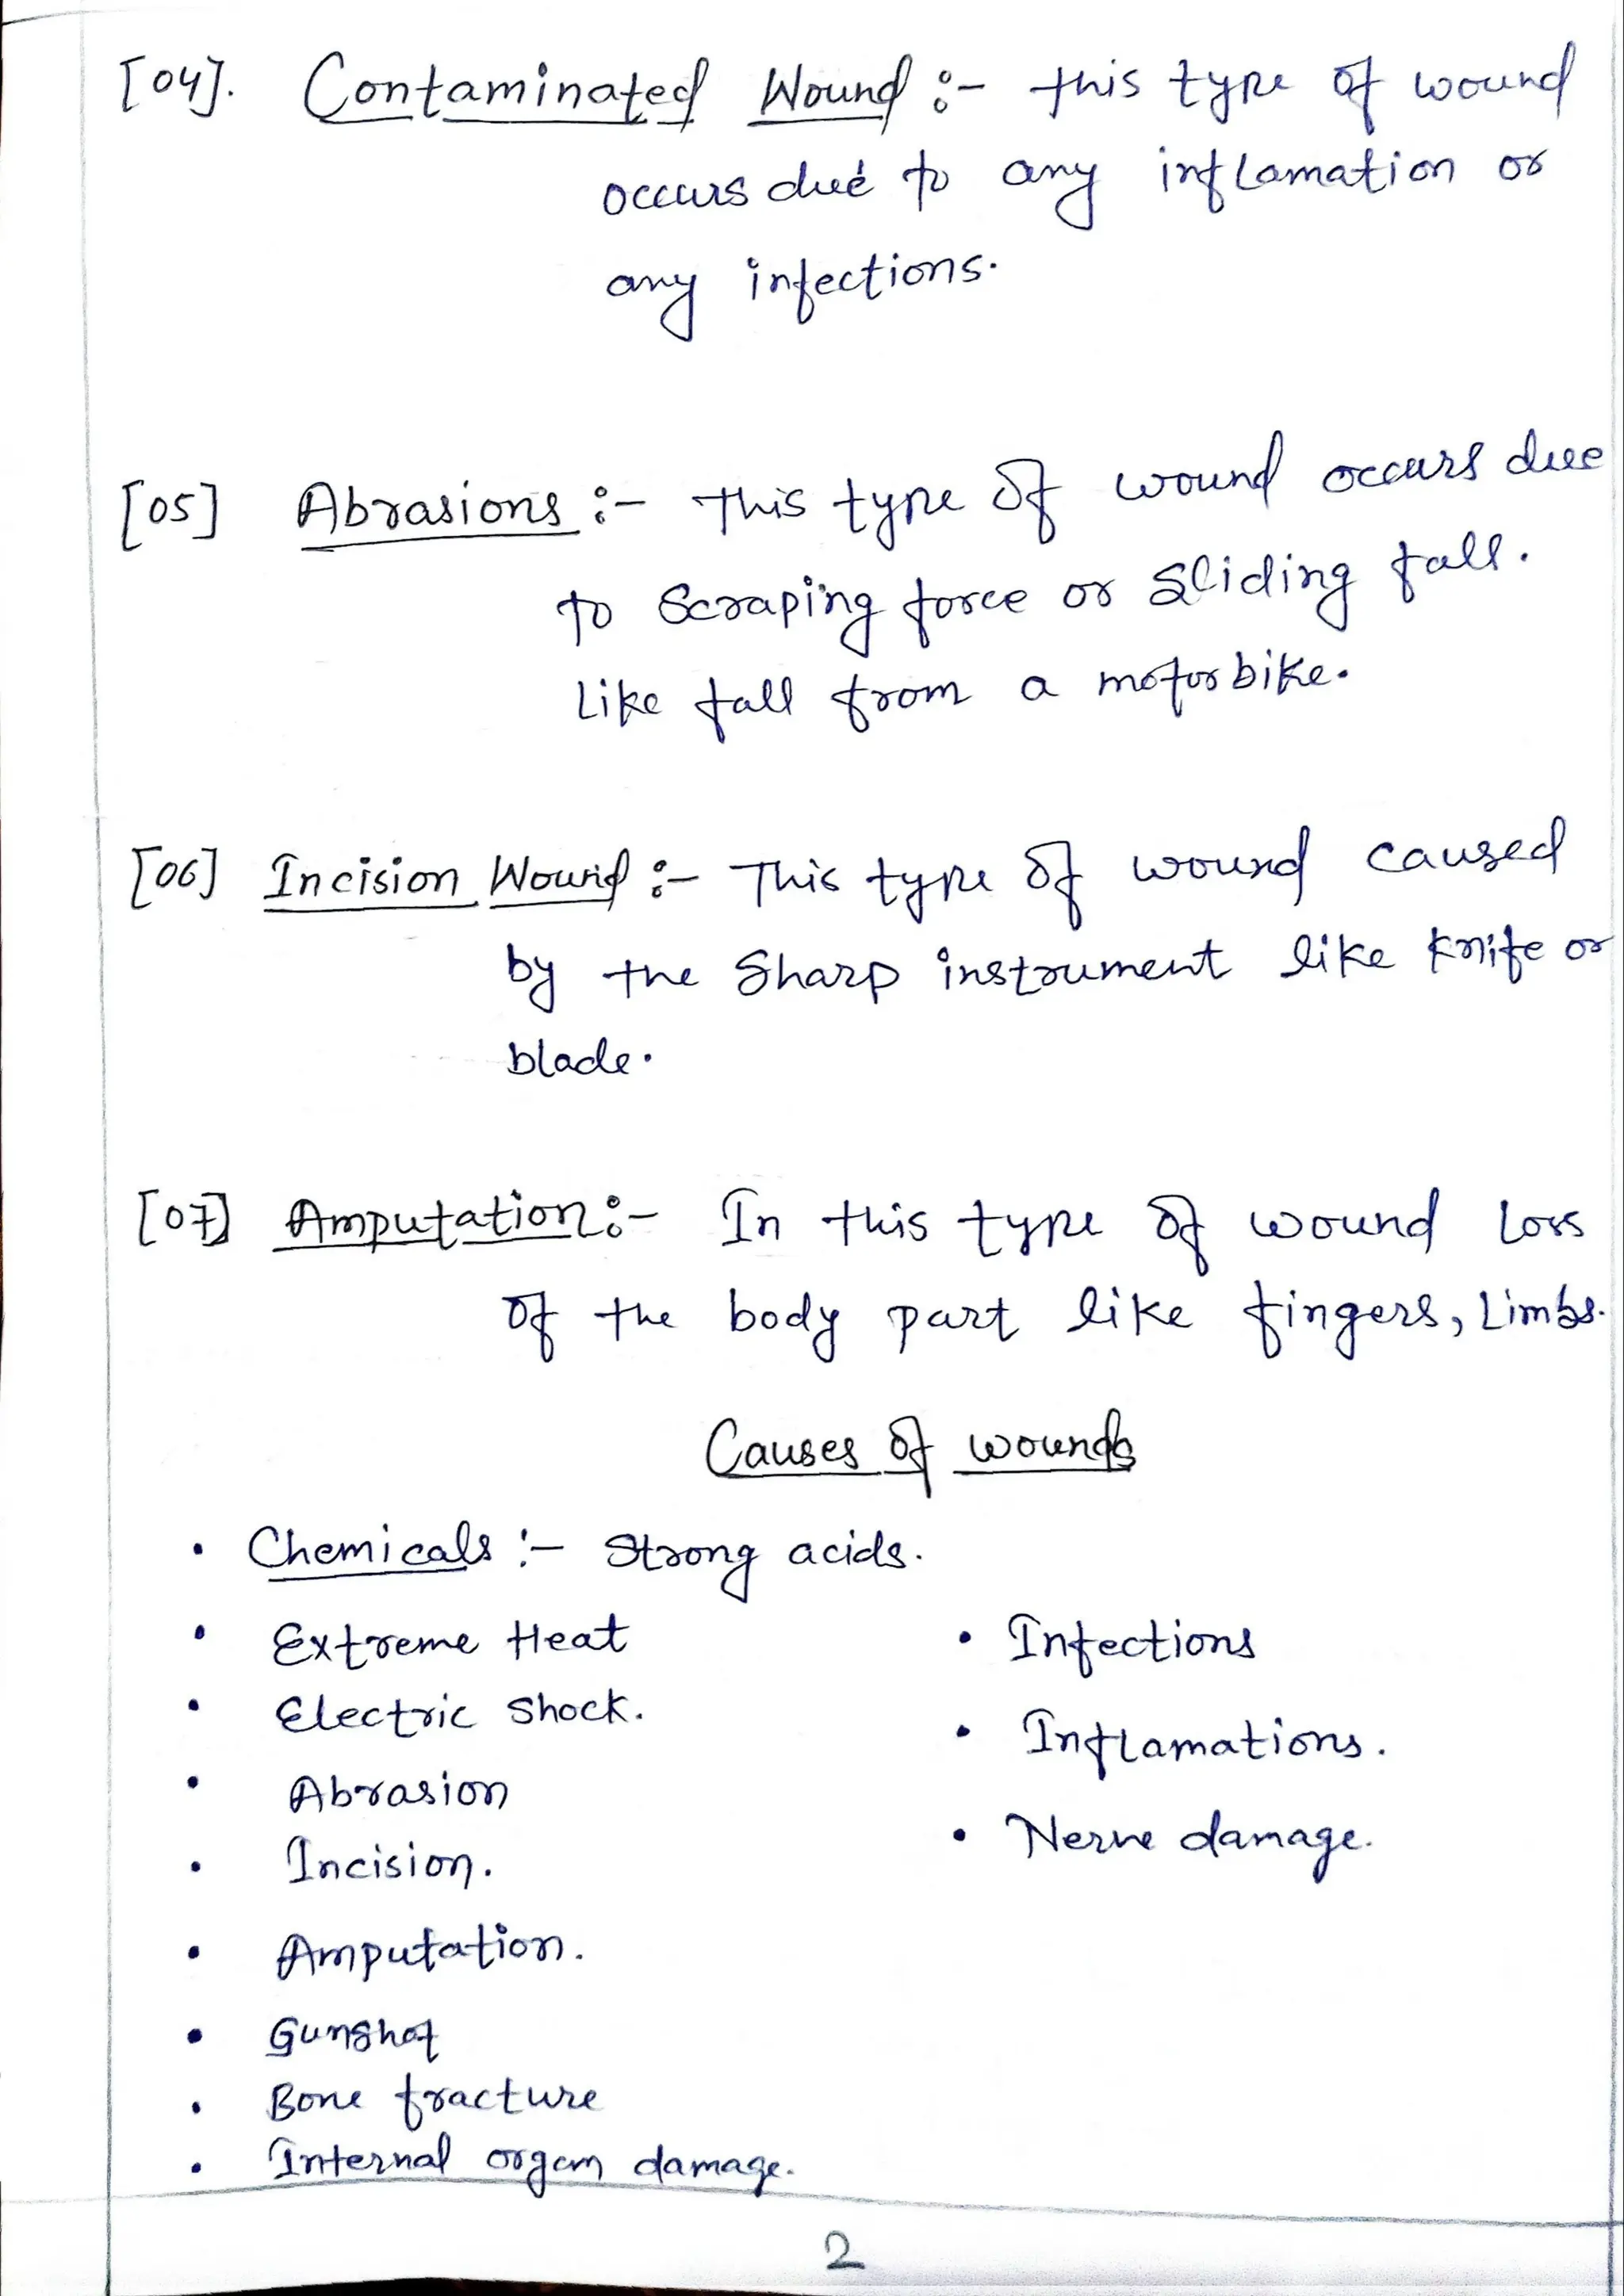 [04]. Contaminated Wound :- this type of wound
occurs due to any inflamation or
any infections.
[05] Abrasions :- this type of wound occurs due
to Scraping force or Sliding fall.
Like fall from a motorbike.
[06] Incision Wound :- This type of wound caused
by the Sharp instrument like knife or
blade.
[07] Amputation :- In this type of wound Loss
of the body part like fingers, Limbs.
Causes of wounds
• Chemicals :- Strong acids.
• Extreme Heat
• Infections
• Electric Shock.
• Inflamations.
• Abrasion
• Nerve damage.
• Incision.
• Amputation.
• Gunshot
• Bone fracture
• Internal organ damage.
2